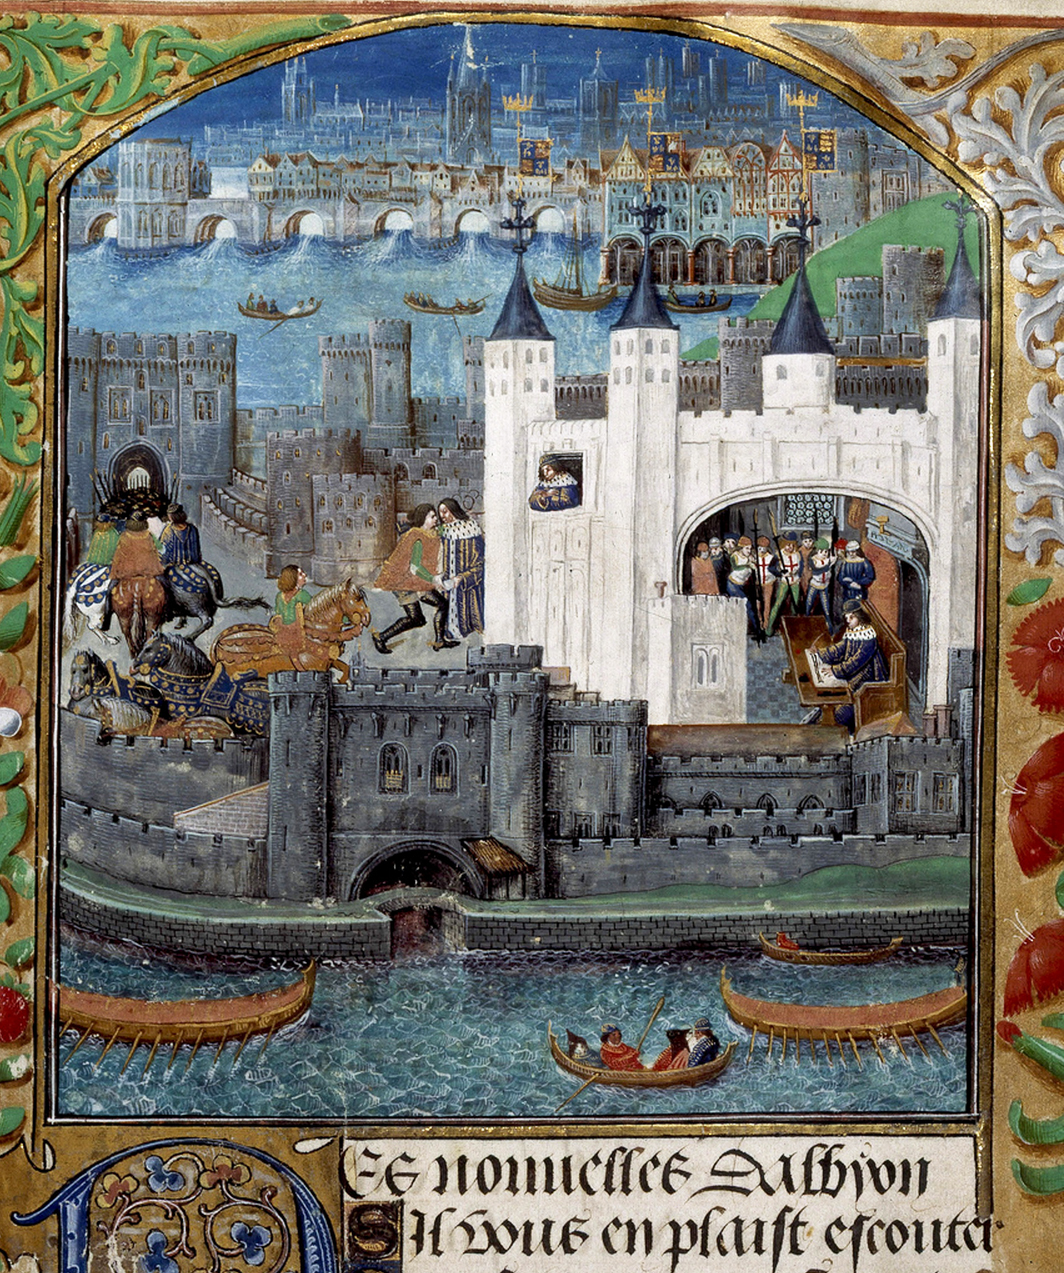 Es nouuelles dalbyon
Sil vous en plaist escouter